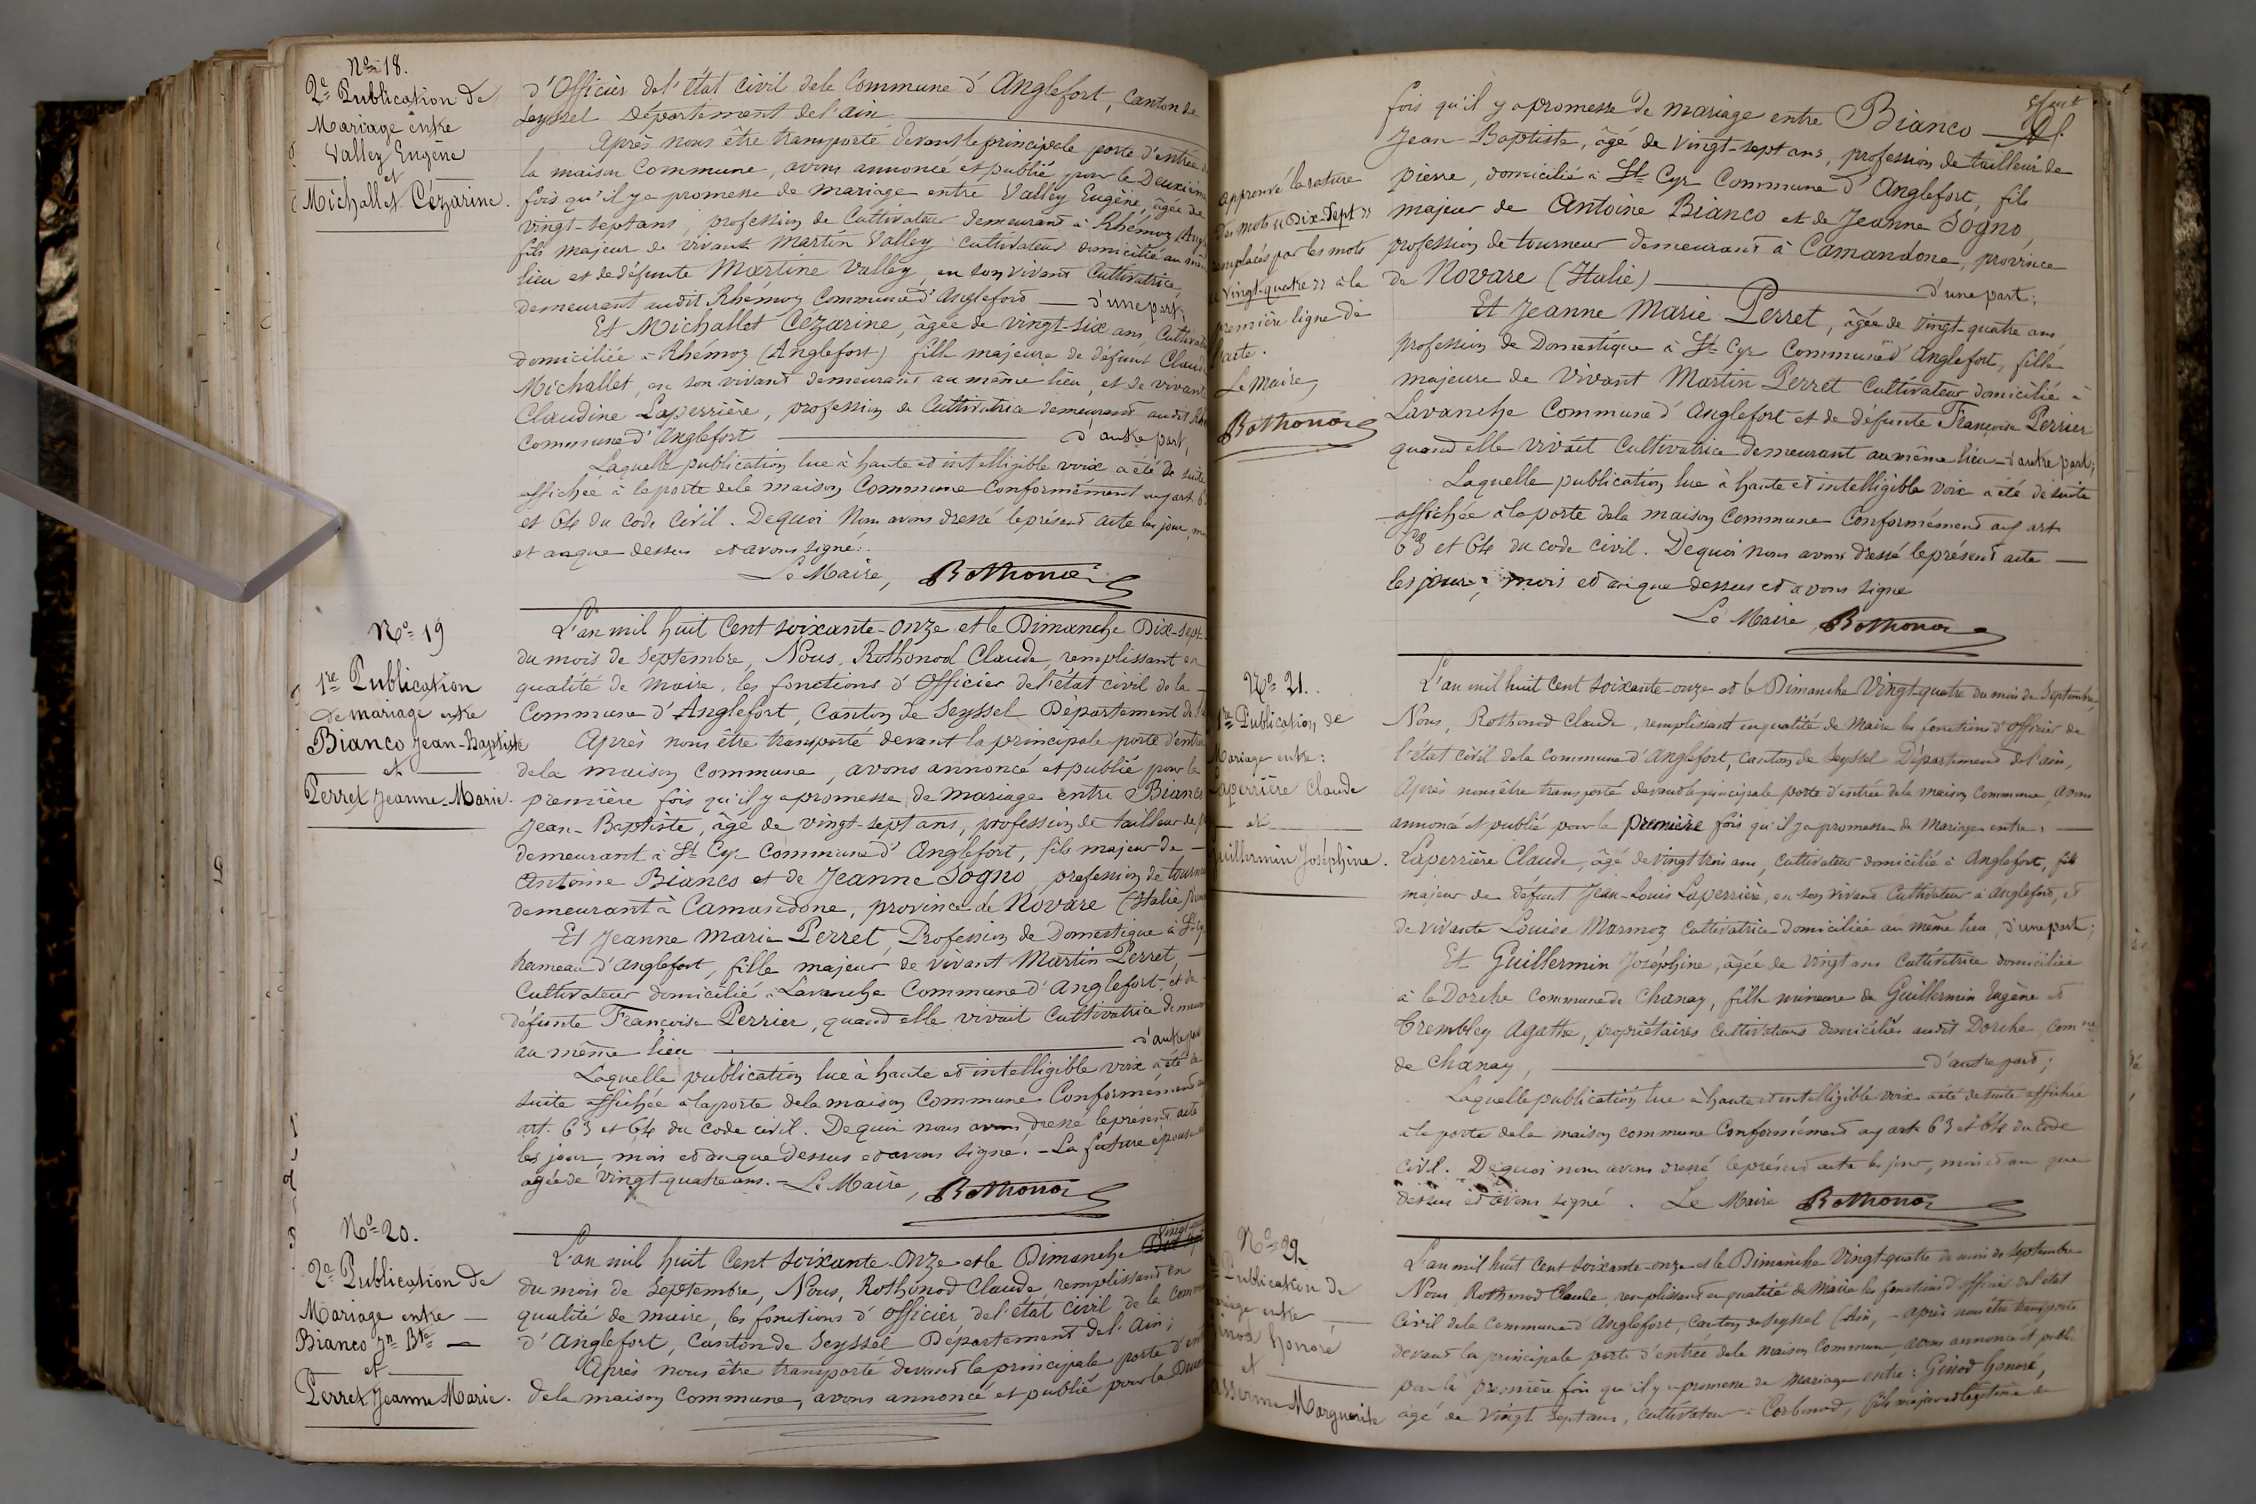 No 18.
2e Publication de
Mariage entre
Valley Eugène
et
Michallet Cézarine.
d'Officier de l'état civil de la Commune d'Anglefort, canton de
Seyssel Département de l'ain
Après nous être transporté devant la principale porte d'entrée
la maison Commune, avons annoncé et publié pour la Deuxième
fois qu'il y a promesse de mariage entre Valley Eugène, âgée de
vingt-sept ans, profession de Cultivateur demeurant à Rhémoz
fils majeur de vivant Martin Valley cultivateur domicilié au même
lieu et de défunte Martine Valley, en son vivant Cultivatrice,
demeurant audit Rhémoz Commune d'Angleford — d'une part;
Et Michallet Cézarine, âgée de vingt-six ans,
domiciliée à Rhémoz (Anglefort) fille majeure de défunt Claude
Michallet, en son vivant demeurant au même lieu, et de vivante
Claudine Laperrière, profession de Cultivatrice demeurant audit
Commune d'Anglefort — d'autre part,
Laquelle publication lue à haute et intelligible voix a été de suite
affichée à la porte de la maison Commune Conformément aux art. 63
et 64 du code civil. De quoi Nous avons dressé le présent acte les jour,
et an que dessus et avons signé.
Le Maire, Rothonod
No 19
1re Publication
de mariage entre
Bianco Jean-Baptiste
et
Perret Jeanne-Marie.
L'an mil huit Cent soixante-onze et le Dimanche Dix-sept
du mois de Septembre, Nous, Rothonod Claude, remplissant en
qualité de maire, les fonctions d'Officier de l'état civil de la
Commune d'Anglefort, Canton de Seyssel Département de l'
Après nous être transporté devant la principale porte d'entrée
de la maison commune, avons annoncé et publié pour la
première fois qu'il y a promesse de mariage entre Bianco
Jean-Baptiste, âgé de vingt-sept ans, profession de tailleur de
demeurant à St Cyr Commune d'Anglefort, fils majeur de —
Antoine Bianco et de Jeanne Sogno, profession de tourneur
demeurant à Camandone, province de Novare (Italie)
Et Jeanne Marie Perret, Profession de Domestique à St Cyr
hameau d'Anglefort, fille majeur de vivant Martin Perret, —
Cultivateur domicilié à Lavanche Commune d'Anglefort, et de
défunte Françoise Perrier, quand elle vivait Cultivatrice
au même lieu — d'autre part
Laquelle publication lue à haute et intelligible voix a été de
suite affichée à la porte de la maison Commune Conformément
art. 63 et 64 du Code civil. De quoi nous avons dressé le présent acte
les jour, mois et an que dessus et avons signé. — La future épouse
agée de vingt-quatre ans. — Le Maire, Rothonod
No 20.
2e Publication de
Mariage entre —
Bianco Jn Bte —
et
Perret Jeanne Marie.
vingt
L'an mil huit Cent soixante-onze et le Dimanche Dix sept
du mois de Septembre, Nous, Rothonod Claude, remplissant en
qualité de maire, les fonctions d'officier de l'état civil de la
d'Anglefort, Canton de Seyssel Département de l'Ain;
Après nous être transporté devant la principale porte d'
de la maison Commune, avons annoncé et publié pour la
fois qu'il y a promesse de mariage entre Bianco
Jean-Baptiste, âgé de vingt-sept ans, profession de tailleur de
pierre, domicilié à St Cyr Commune d'Anglefort, fils
majeur de Antoine Bianco et de Jeanne Sogno,
profession de tourneur demeurant à Camandone, province
de Novare (Italie) — d'une part;
Et Jeanne Marie Perret, âgée de vingt-quatre ans
profession de Domestique à St Cyr Commune d'Anglefort, fille
majeure de vivant Martin Perret Cultivateur domicilié à
Lavanche Commune d'Anglefort et de défunte Françoise Perrier
quand elle vivait Cultivatrice demeurant au même lieu — d'autre part;
Laquelle publication lue à haute et intelligible voix a été de suite
affichée à la porte de la maison Commune Conformément aux art
63 et 64 du code civil. De quoi nous avons dressé le présent acte —
les jour, mois et an que dessus et avons signé
Le Maire Rothonod
Approuvé la rature
des mots « Dix-Sept »
remplacés par les mots
« Vingt-quatre » à la
première ligne de
l'acte.
Le Maire,
Rothonod
No 21.
1re Publication de
Mariage entre:
Laperrière Claude
— et —
Guillermin Joséphine.
L'an mil huit Cent soixante-onze et le Dimanche Vingt-quatre du mois de Septembre,
Nous, Rothonod Claude, remplissant en qualité de Maire les fonctions d'Officier de
l'état civil de la Commune d'Anglefort, Canton de Seyssel Département de l'ain,
Après nous être transporté devant la principale porte d'entrée de la maison Commune, avons
annoncé et publié pour la première fois qu'il y a promesse de Mariage entre: —
Laperrière Claude, âgé de vingt trois ans, cultivateur domicilié à Anglefort, fils
majeur de défunt Jean-Louis Laperrière, en son vivant Cultivateur à Angleford, et
de vivante Louise Marmoz Cultivatrice domiciliée au même lieu, d'une part;
Et Guillermin Joséphine, âgée de vingt ans Cultivatrice domiciliée
à la Dorche Commune de Chanay, fille mineure de Guillermin Eugène et
Trembley Agathe, propriétaires Cultivateurs domiciliés audit Dorche, Comne
de Chanay, — d'autre part;
Laquelle publication lue à haute et intelligible voix a été de suite affichée
à la porte de la maison commune Conformément aux art. 63 et 64 du Code
civil. De quoi nous avons dressé le présent acte les jour, mois et an que
dessus et avons signé. Le Maire Rothonod
No 22
Publication de
mariage entre
Ginod Honoré
et
Marguerite
L'an mil huit Cent soixante-onze et le Dimanche Vingt-quatre du mois de Septembre
Nous, Rothonod Claude, remplissant en qualité de Maire les fonctions d'officier de l'état
Civil de la Commune d'Anglefort, Canton de Seyssel (Ain, — après nous être transporté
devant la principale porte d'entrée de la maison Commune, avons annoncé et publié
pour la première fois qu'il y a promesse de mariage entre: Ginod Honoré,
âgé de vingt sept ans, cultivateur à Corbonod, fils majeur et légitime de